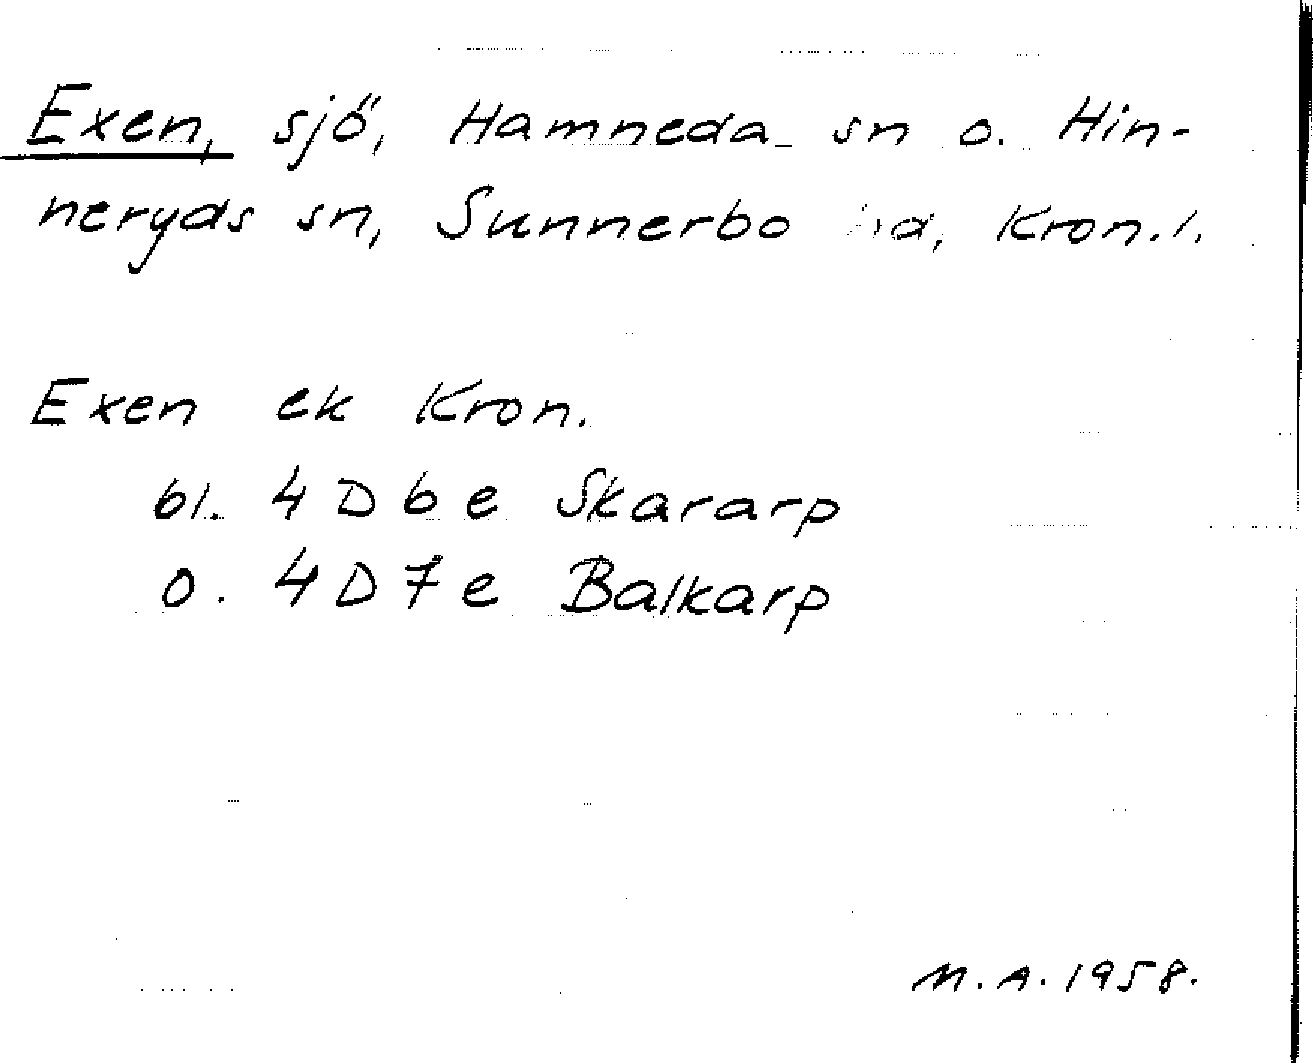 Exen, sjö, Hamneda sn o. Hin-
neryds sn, Sunnerbo hd, Kron. l.
Exen ek Kron.
bl. 4 D 6 e Skararp
o. 4 D 7 e Balkarp
M. A. 1958.